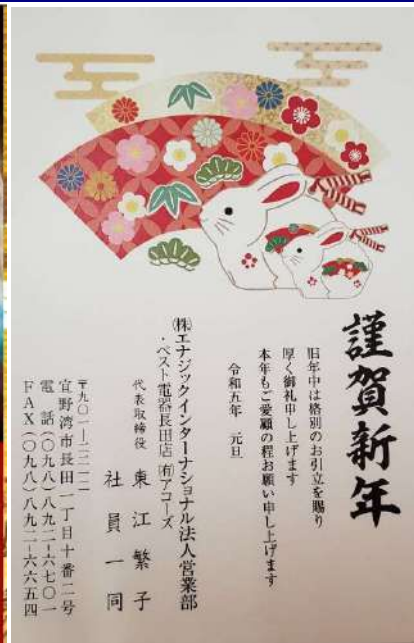 謹賀新年
旧年中は格別のお引立を賜り
厚く御礼申し上げます
本年もご愛顧の程お願い申し上げます
令和五年 元旦
㈱エナジックインターナショナル法人営業部
・ベスト電器長田店 ㈲アコーズ
代表取締役 東江繁子
社員一同
〒九〇一ー二二一二
宜野湾市長田一丁目十番二号
電話(〇九八)八九二ー六七〇一
FAX(〇九八)八九二ー六六五四